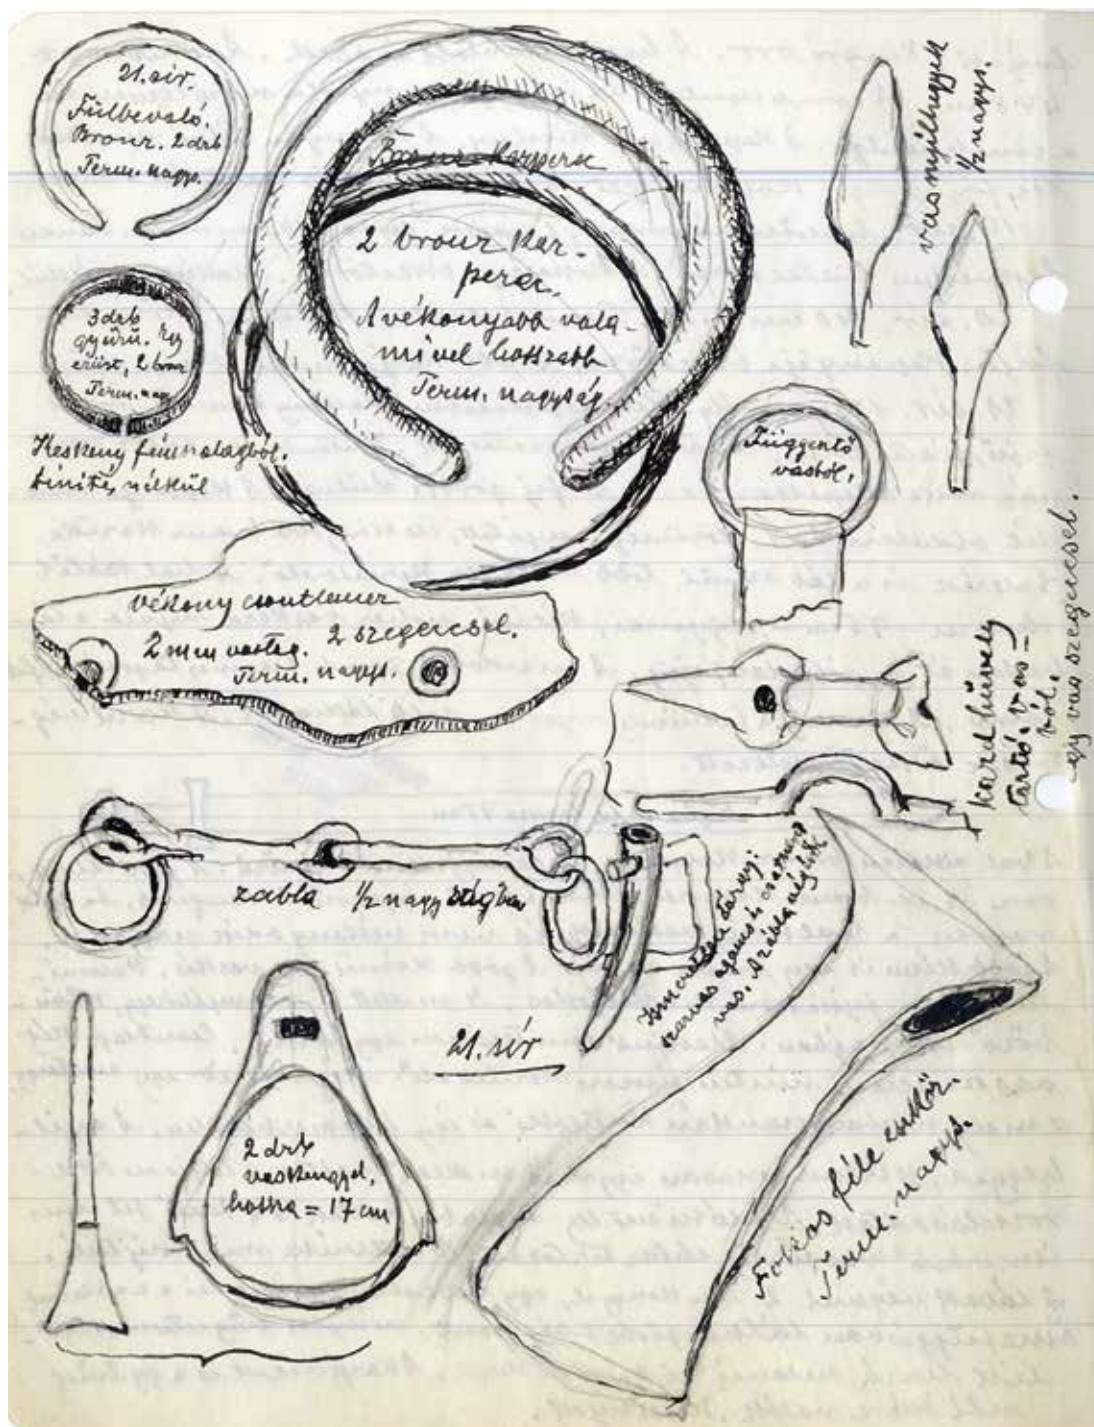 21. sír.
Fülbevaló.
Bronz. 2 drb
Term. nagys.
Bronz karperec
2 bronz kar-
perec.
A vékonyabb vala-
mivel hosszabb
Term. nagyság.
vas nyílhegyek
1/2 nagys.
3 drb
gyűrü. Egy
ezüst, 2 bronz
Term. nagy
Keskeny fémszalagból.
díszítés nélkül
Függesztő
vasból.
vékony csontlemez
2 mm vastag. 2 szegeccsel.
Term. nagys.
kardhüvely
tartó. vas-
ból.
egy vas szegeccsel.
zabla 1/2 nagyságban
Ismeretlen tárgy:
szarvas agancs és csomó
vas. A zabla mellett
21. sír
2 drb
vaskengyel,
hossza = 17 cm
Fokos féle eszköz.
Term. nagys.